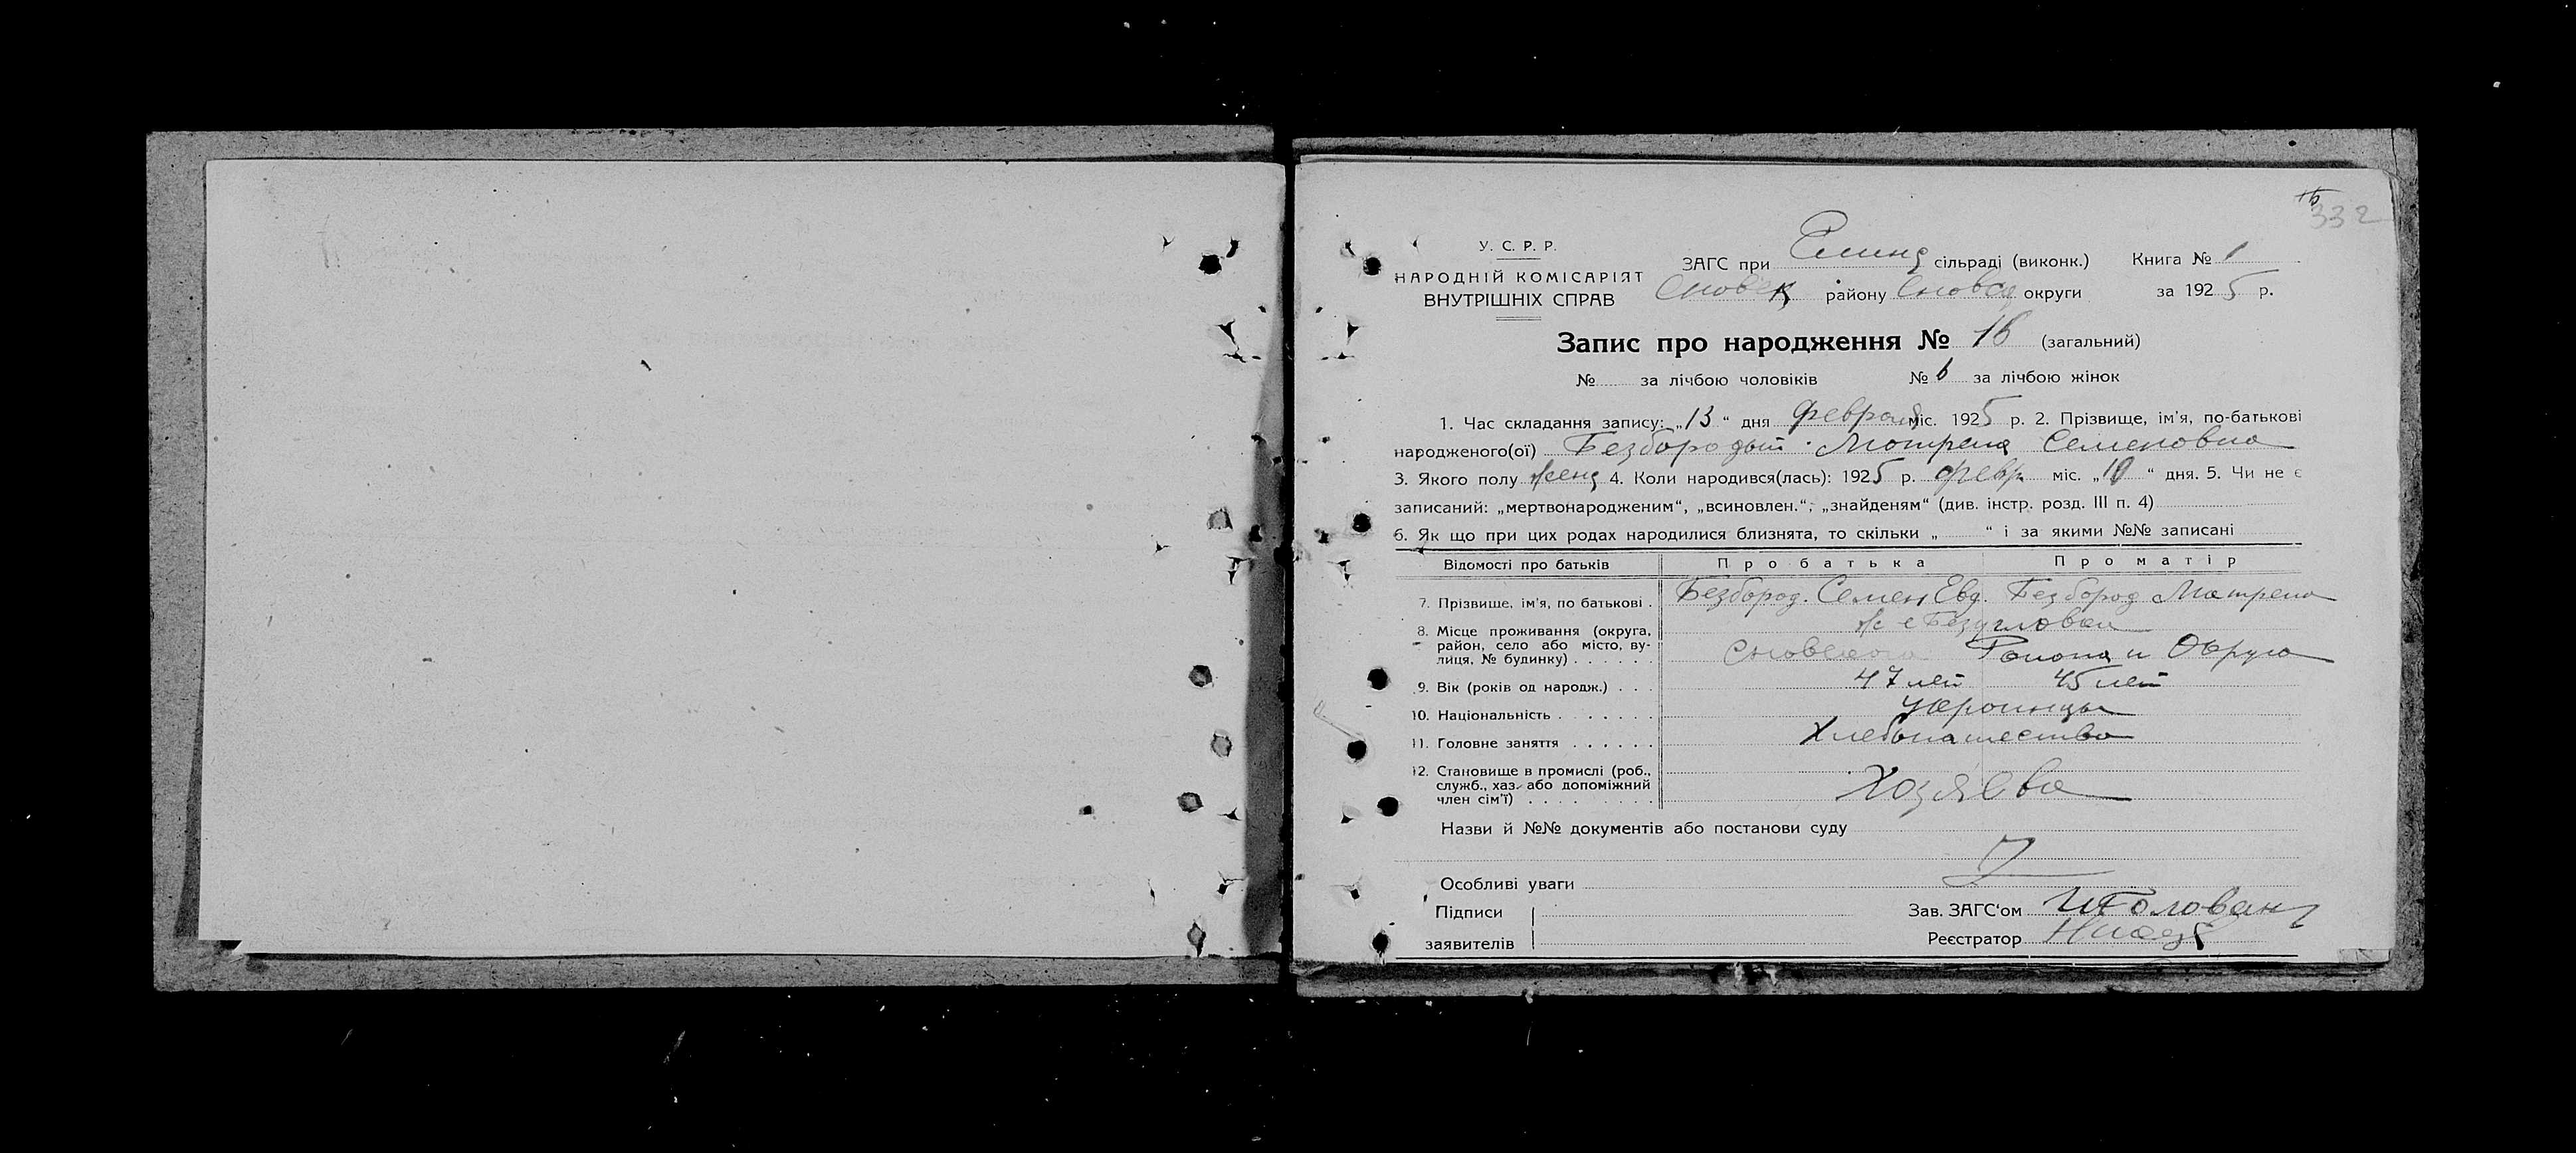 332
У. С. Р. Р.
НАРОДНІЙ КОМІСАРІЯТ
ВНУТРІШНІХ СПРАВ
ЗАГС при сільраді (виконк.) Книга № 1
Сновск району Сновск округи за 1925 р.
Запис про народження № 16 (загальний)
№ за лічбою чоловіків № 6 за лічбою жінок
1. Час складання запису: „13“ дня Февраля міс. 1925 р. 2. Прізвище, ім'я, по-батькові
народженого(ої) Безбородый Мотрена Семеновна
3. Якого полу женс 4. Коли народився(лась): 1925 р. февр міс. „10“ дня. 5. Чи не є
записаний: „мертвонародженим“, „всиновлен.“, „знайденям“ (див. інстр. розд. III п. 4)
6. Як що при цих родах народилися близнята, то скільки „ “ і за якими №№ записані
Відомості про батьків Про батька Про матір
7. Прізвище, ім'я, по батькові . Безбород. Семен Евд. Безбород Матрена
8. Місце проживання (округа, район, село або місто, вулиця, № будинку) . . . . . .
Сновского Района и Округа
9. Вік (років од народж.) . . . 47 лет 45 лет
10. Національність . . . . . . . Украинцы
11. Головне заняття . . . . . . Хлебопашество
12. Становище в промислі (роб., служб., хаз. або допоміжний член сім'ї) . . . . . . . .
Хозяева
Назви й №№ документів або постанови суду
Особливі уваги
Підписи
заявителів
Зав. ЗАГС'ом Головань
Реєстратор